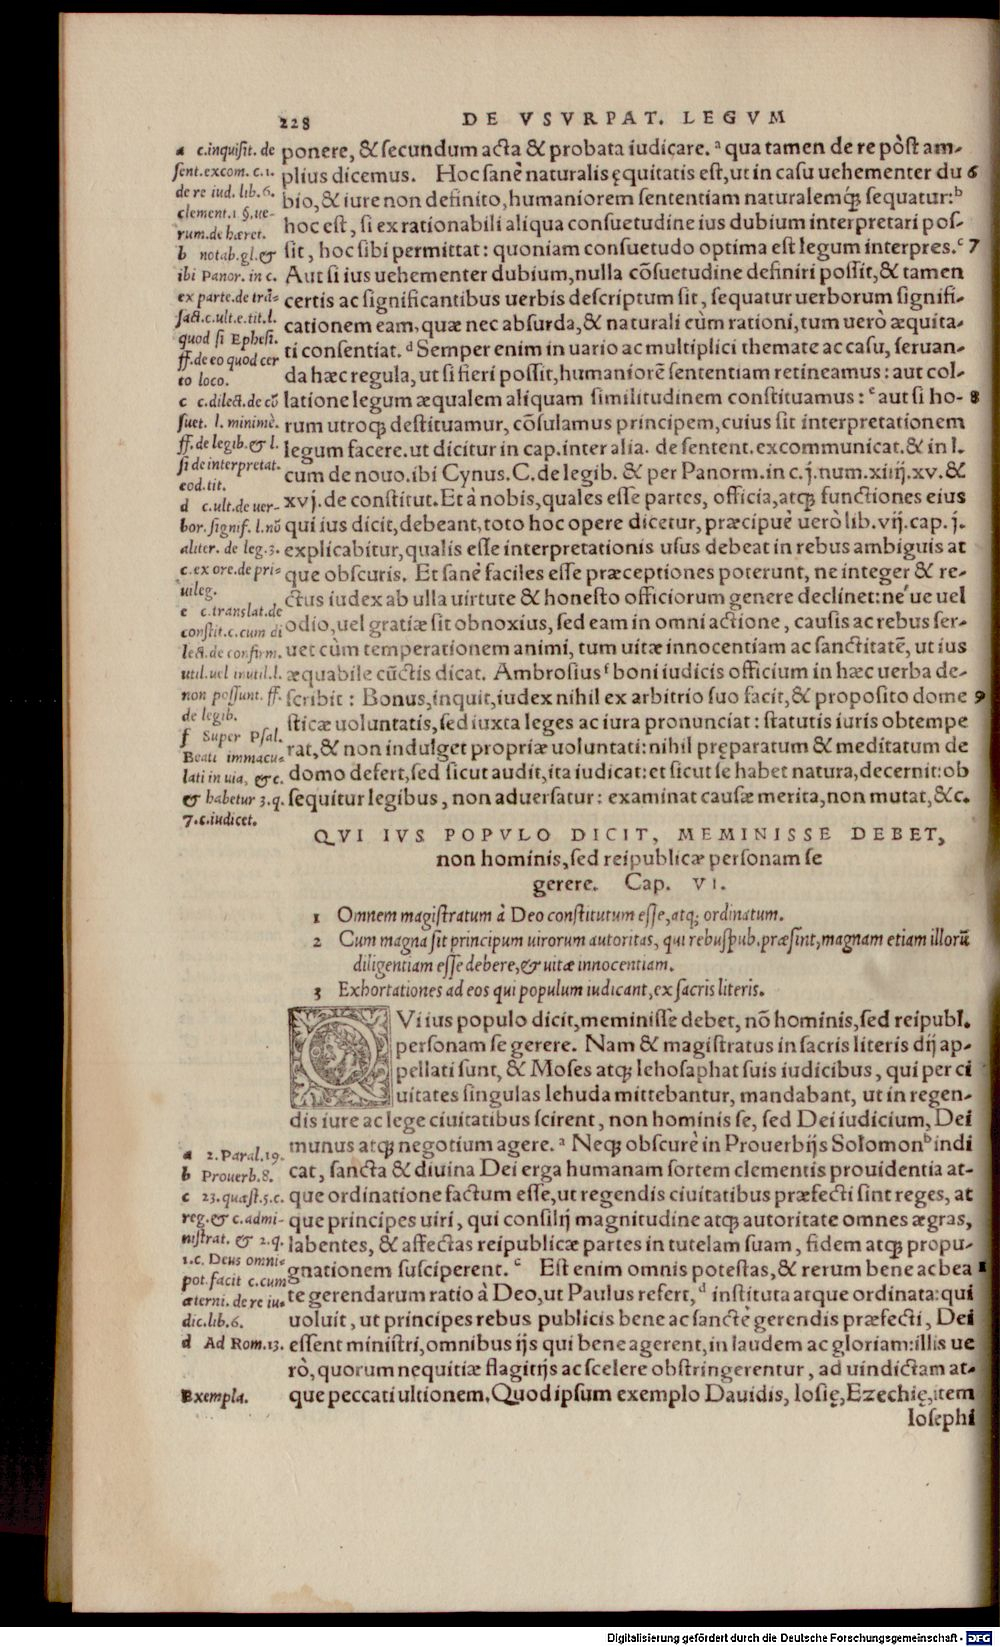 228 DE VSVRPAT. LEGVM
ponere, & secundum acta & probata iudicare.ª qua tamen de re pòst am-
plius dicemus. Hoc sanè naturalis ęquitatis est, ut in casu uehementer du 6
bio, & iure non definito, humaniorem sententiam naturalemq́ꝫ sequatur:ᵇ
hoc est, si ex rationabili aliqua consuetudine ius dubium interpretari pos-
sit, hoc sibi permittat: quoniam consuetudo optima est legum interpres.ᶜ 7
Aut si ius uehementer dubium, nulla cõsuetudine definiri possit, & tamen
certis ac significantibus uerbis descriptum sit, sequatur uerborum signifi-
cationem eam, quæ nec absurda, & naturali cùm rationi, tum uerò æquita-
ti consentiat.ᵈ Semper enim in uario ac multiplici themate ac casu, seruan-
da hæc regula, ut si fieri possit, humaniorẽ sententiam retineamus: aut col-
latione legum æqualem aliquam similitudinem constituamus:ᵉ aut si ho- 8
rum utroqꝫ destituamur, cõsulamus principem, cuius sit interpretationem
legum facere. ut dicitur in cap. inter alia. de sentent. excommunicat. & in l.
cum de nouo. ibi Cynus. C. de legib. & per Panorm. in c. j. num. xiiij. xv. &
xvj. de constitut. Et à nobis, quales esse partes, officia, atqꝫ functiones eius
qui ius dicit, debeant, toto hoc opere dicetur, præcipuè uerò lib. vij. cap. j.
explicabitur, qualis esse interpretationis usus debeat in rebus ambiguis at
que obscuris. Et sanè faciles esse præceptiones poterunt, ne integer & re-
ctus iudex ab ulla uirtute & honesto officiorum genere declinet: ne´ue uel
odio, uel gratiæ sit obnoxius, sed eam in omni actione, causis ac rebus ser-
uet cùm temperationem animi, tum uitæ innocentiam ac sanctitatẽ, ut ius
æquabile cũctis dicat. Ambrosiusᶠ boni iudicis officium in hæc uerba de-
scribit: Bonus, inquit, iudex nihil ex arbitrio suo facit, & proposito dome 9
sticæ uoluntatis, sed iuxta leges ac iura pronunciat: statutis iuris obtempe
rat, & non indulget propriæ uoluntati: nihil pręparatum & meditatum de
domo defert, sed sicut audit, ita iudicat: et sicut se habet natura, decernit: ob
sequitur legibus, non aduersatur: examinat causæ merita, non mutat, &c.
a c. inquisit. de
sent. excom. c. 1.
de re iud. lib. 6.
clement. 1 §. ue-
rum. de hæret.
b notab. gl. &
ibi Panor. in c.
ex parte. de trã-
sact. c. ult. e. tit. l.
quod si Ephesi.
ff. de eo quod cer
to loco.
c c. dilect. de cõ
suet. l. minimè.
ff. de legib. & l.
si de interpretat.
eod. tit.
d c. ult. de uer-
bor. signif. l. nõ
aliter. de leg. 3.
c. ex ore. de pri-
uileg.
e c. translat. de
constit. c. cum di
lect. de confirm.
util. uel inutil. l.
non possunt. ff.
de legib.
f Super Psal.
Beati immacu-
lati in uia, &c.
& habetur 3. q.
7. c. iudicet.
QVI IVS POPVLO DICIT, MEMINISSE DEBET,
non hominis, sed reipublicæ personam se
gerere. Cap. VI.
1 Omnem magistratum à Deo constitutum esse, atqꝫ ordinatum.
2 Cum magna sit principum uirorum autoritas, qui rebuspub. præsint, magnam etiam illorũ
diligentiam esse debere, & uitæ innocentiam.
3 Exhortationes ad eos qui populum iudicant, ex sacris literis.
QVi ius populo dicit, meminisse debet, nõ hominis, sed reipubl.
personam se gerere. Nam & magistratus in sacris literis dij ap-
pellati sunt, & Moses atqꝫ Iehosaphat suis iudicibus, qui per ci
uitates singulas Iehuda mittebantur, mandabant, ut in regen-
dis iure ac lege ciuitatibus scirent, non hominis se, sed Dei iudicium, Dei
munus atqꝫ negotium agere.ª Neqꝫ obscurè in Prouerbijs Solomonᵇ indi
cat, sancta & diuina Dei erga humanam sortem clementis prouidentia at-
que ordinatione factum esse, ut regendis ciuitatibus præfecti sint reges, at
que principes uiri, qui consilij magnitudine atqꝫ autoritate omnes ægras,
labentes, & affectas reipublicæ partes in tutelam suam, fidem atqꝫ propu-
gnationem susciperent.ᶜ Est enim omnis potestas, & rerum bene ac bea 1
te gerendarum ratio à Deo, ut Paulus refert,ᵈ instituta atque ordinata: qui
uoluit, ut principes rebus publicis bene ac sanctè gerendis præfecti, Dei
essent ministri, omnibus ijs qui bene agerent, in laudem ac gloriam: illis ue
rò, quorum nequitiæ flagitijs ac scelere obstringerentur, ad uindictam at-
que peccati ultionem. Quod ipsum exemplo Dauidis, Iosię, Ezechię, item
Iosephi
a 2. Paral. 19.
b Prouerb. 8.
c 23. quæst. 5. c.
reg. & c. admi-
nistrat. & 2. q.
1. c. Deus omni-
pot. facit c. cum
æterni. de re iu-
dic. lib. 6.
d Ad Rom. 13.
Exempla.
Digitalisierung gefördert durch die Deutsche Forschungsgemeinschaft - DFG